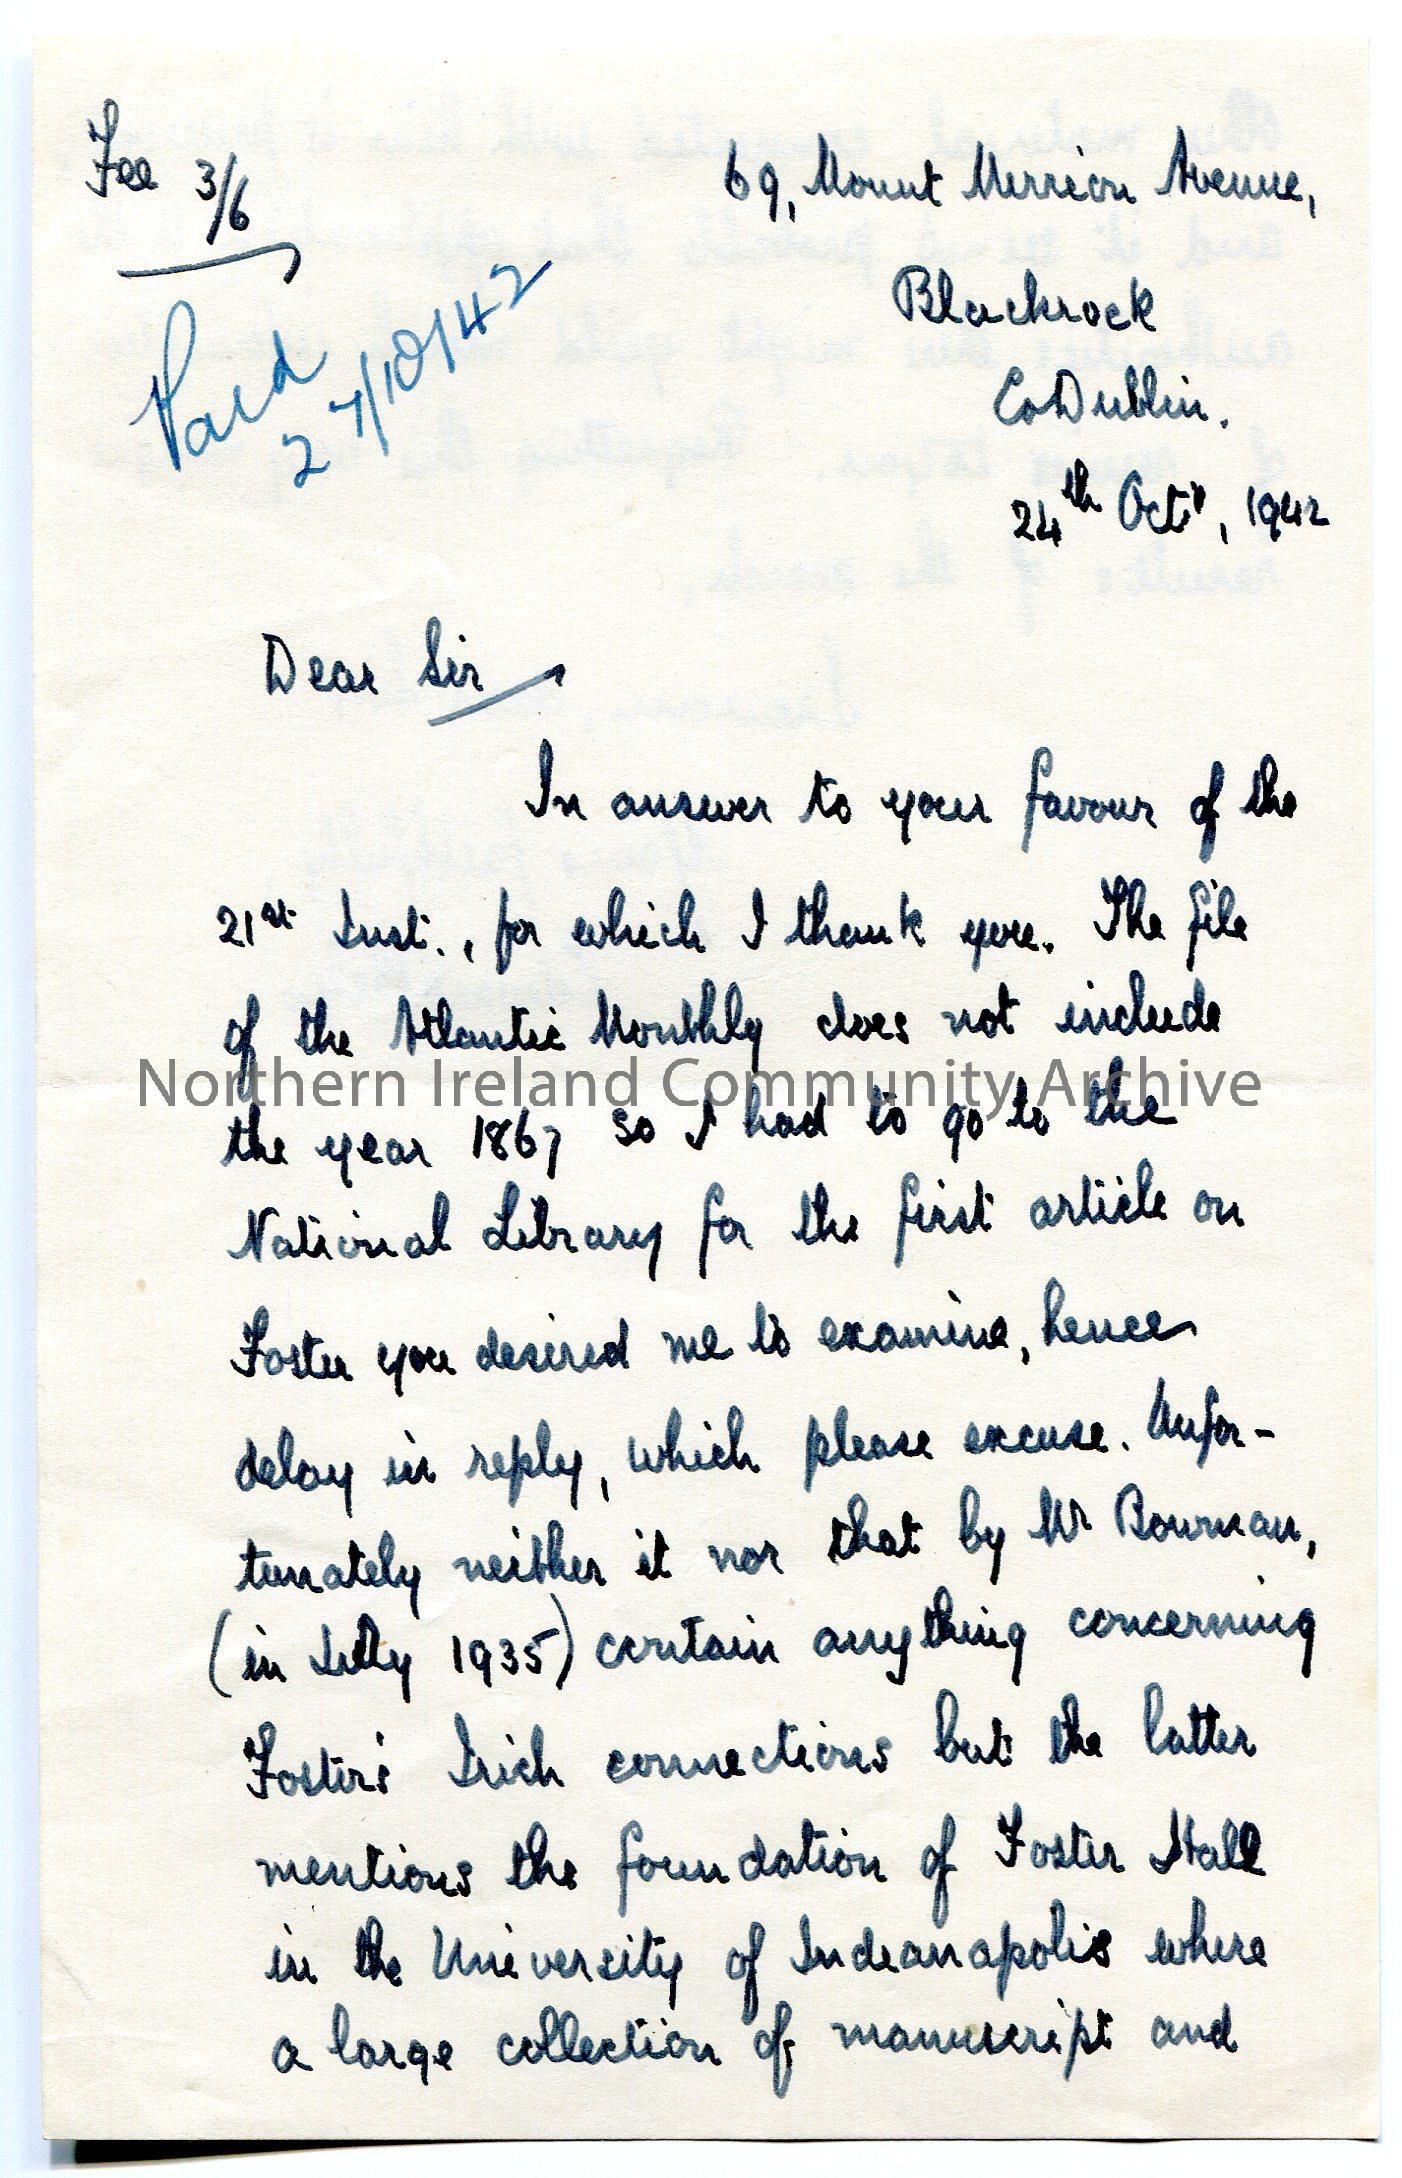 Fee 3/6
Paid
27/10/42
69, Mount Merrion Avenue,
Blackrock
Co Dublin.
24th Octr, 1942
Dear Sir
In answer to your favour of the
21st Inst., for which I thank you. The file
of the Atlantic Monthly does not include
Northern Ireland Community Archive
the year 1867 so I had to go to the
National Library for the first article on
Foster you desired me to examine, hence
delay in reply, which please excuse. Unfor-
tunately neither it nor that by Mr Bowman,
(in July 1935) contain anything concerning
Foster's Irish connections but the latter
mentions the foundation of Foster Hall
in the University of Indeanapolis where
a large collection of manuscript and